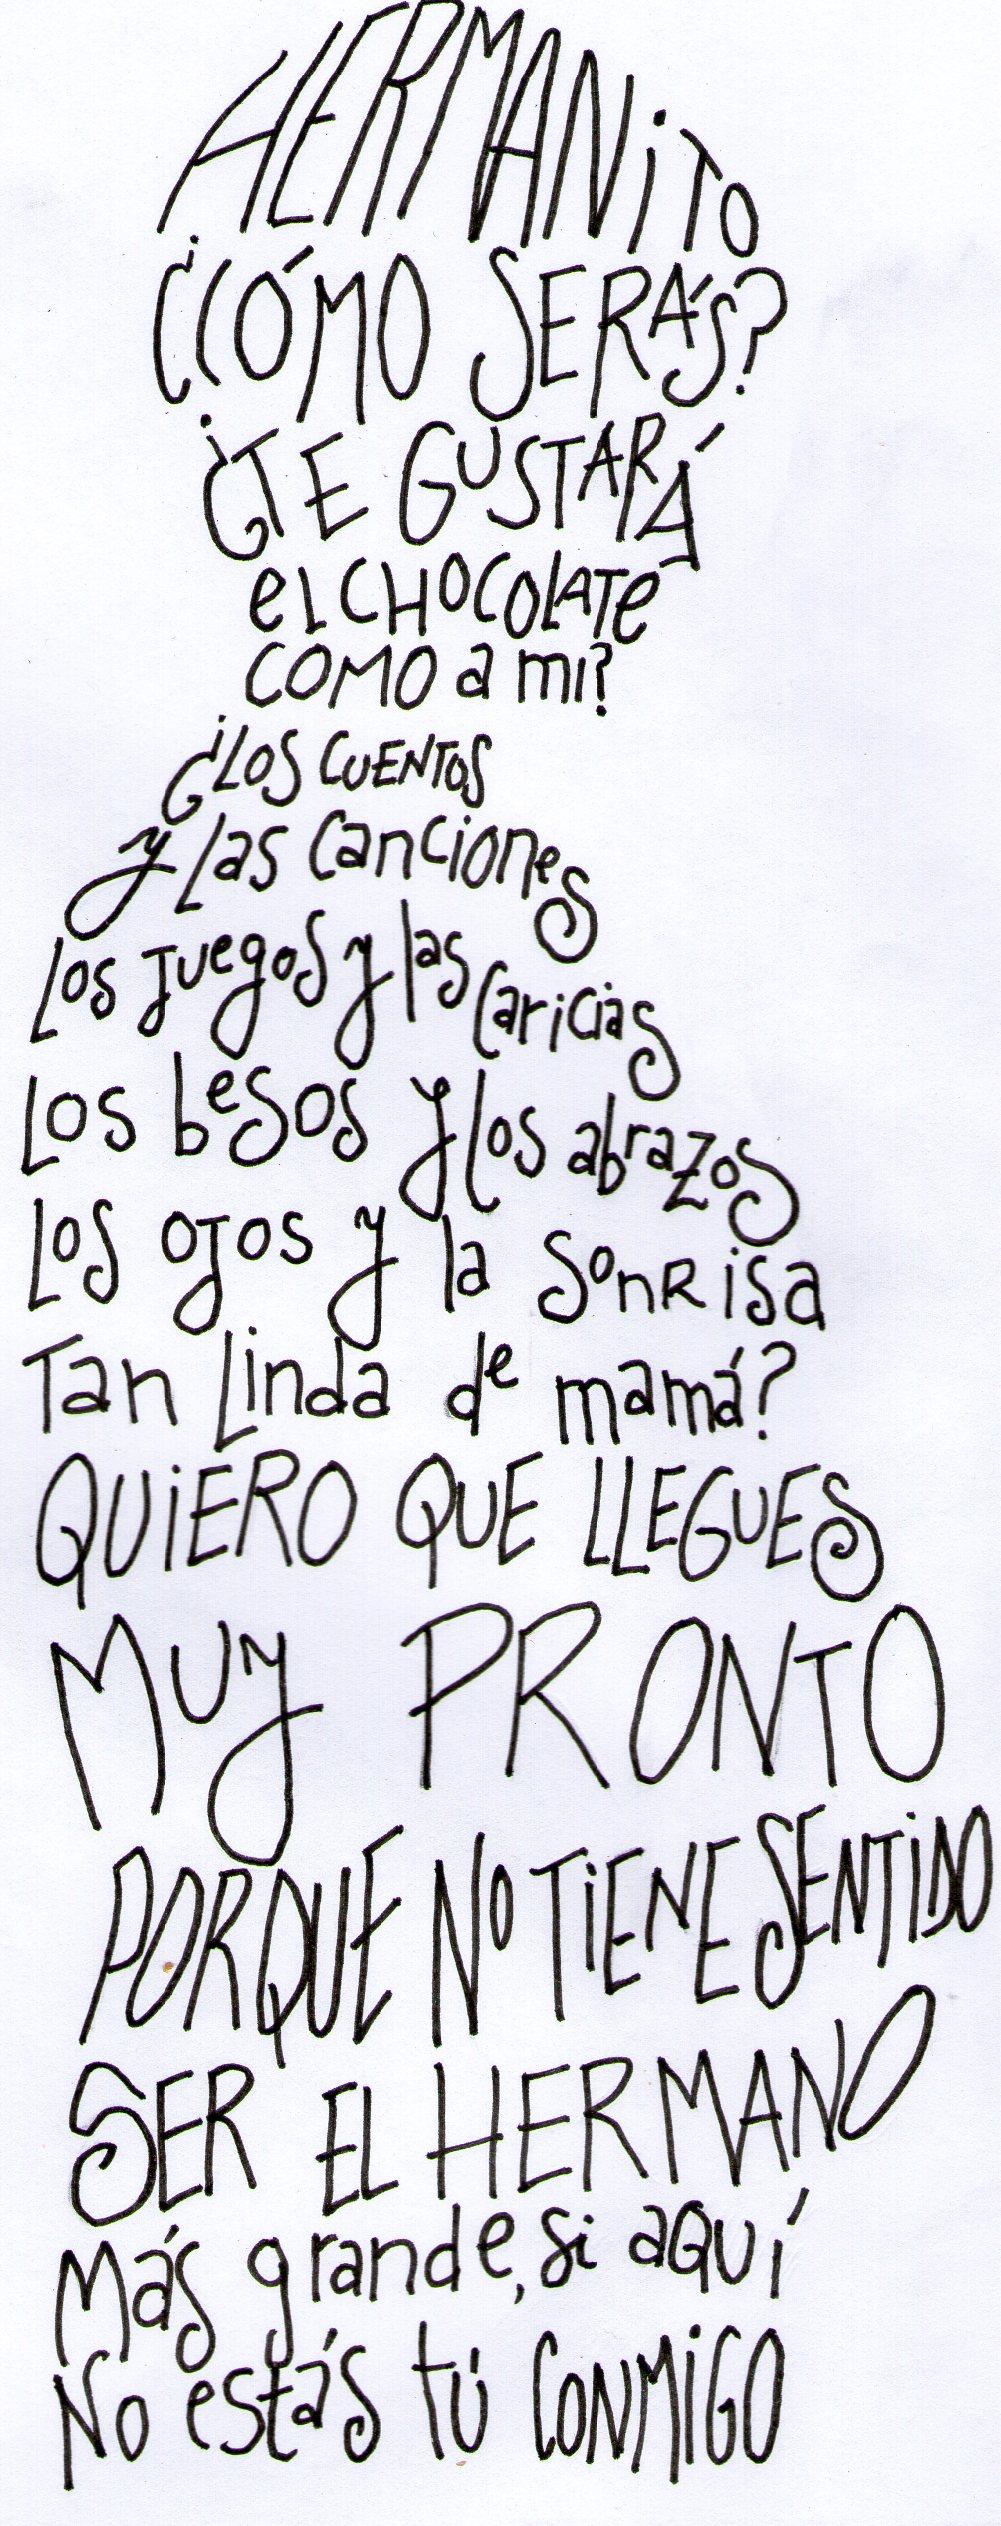 HERMANiTO
¿CÓMO SERÁS?
¿TE GUSTARÁ
el CHOCOLATE
COMO a mi?
¿LOS CUENTOS
y las canciones
Los juegos y las caricias
Los besos y los abrazos
Los ojos y la sonrisa
Tan Linda de mamá?
QUiERO QUE LLEGUES
MUy PRONTO
PORQUE NO TiENE SENTiDO
SER EL HERMANO
Más grande, si aquí
No estás tú CONMiGO